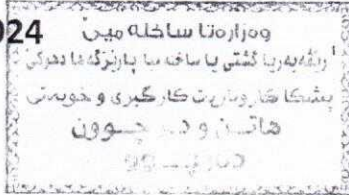 024
وەزارەتا ساخلەمیێ
رێڤەبەریا گشتی یا ساخلەمیا پارێزگەها دهوکێ
پشکا کاروباریت کارگێری و خویەتی
هاتن و دەرچوون